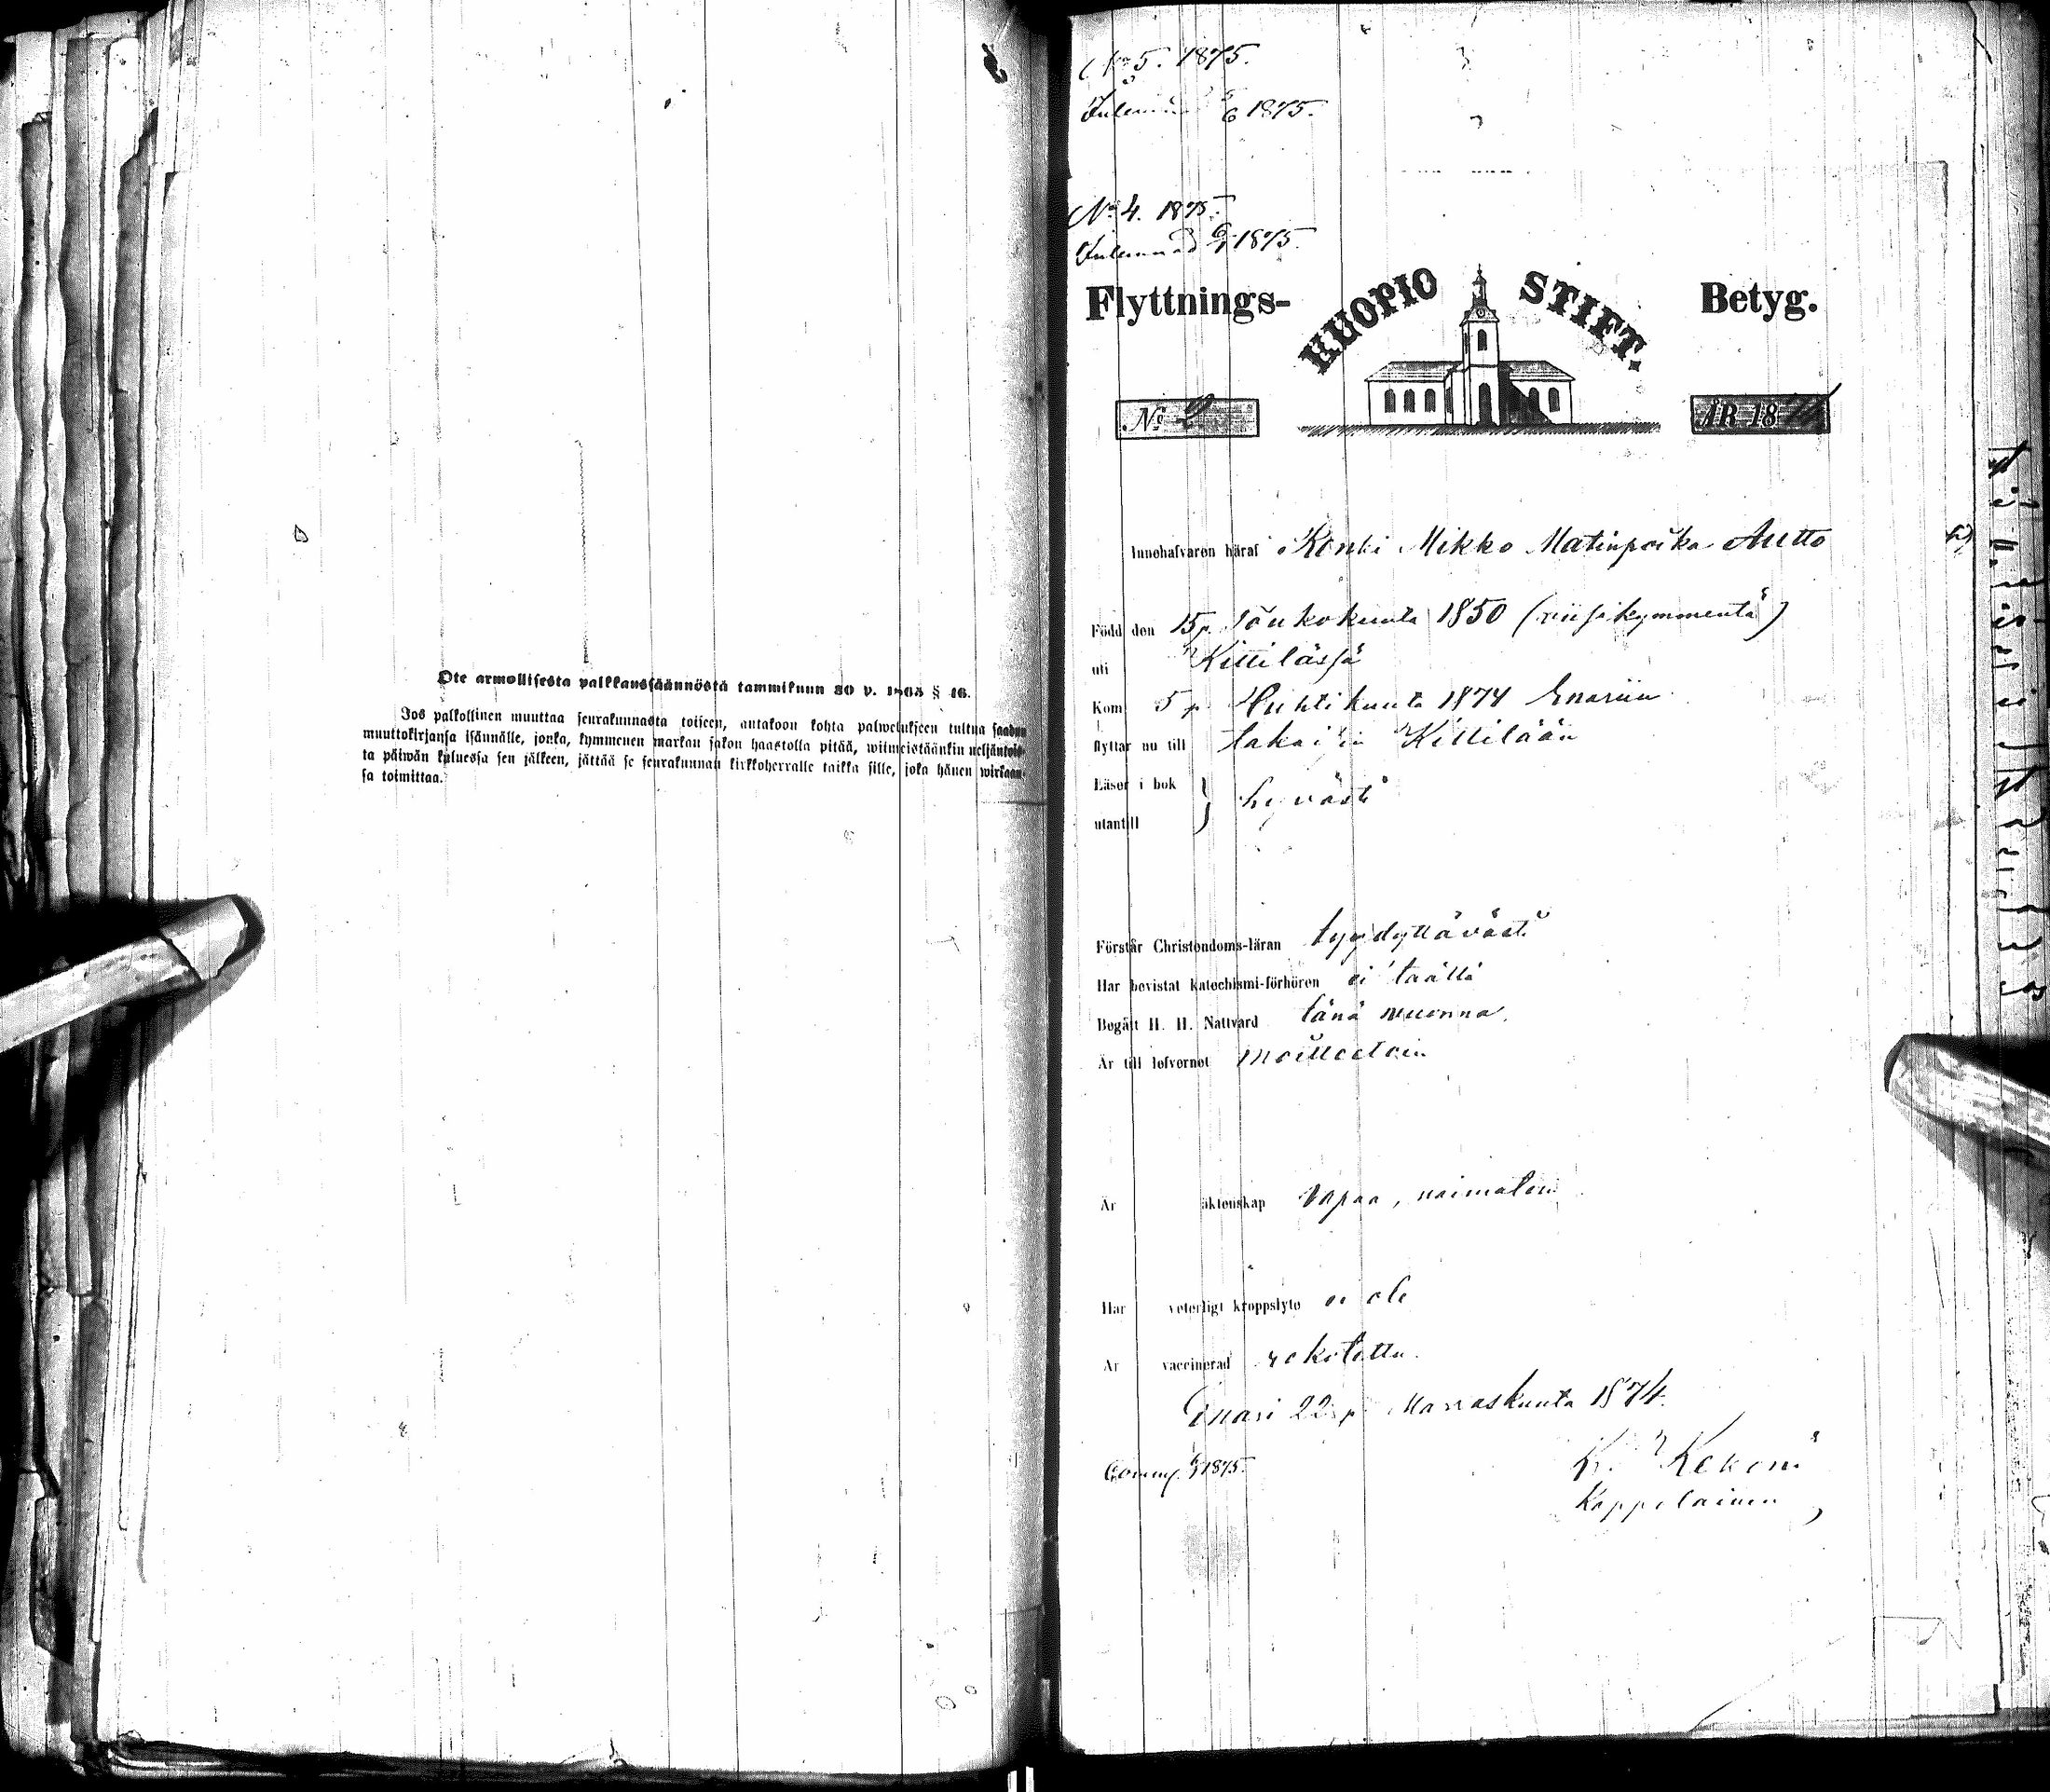 Ote armollisesta palkkaussäännöstä tammikuun 30 p. 1865 § 16.
Jos palkollinen muuttaa seurakunnasta toiseen, antakoon kohta palwelukseen tultua saadun
muuttokirjansa isännälle, jonka, kymmenen markan sakon haastolla pitää, wiimeistäänkin neljäntois-
ta päiwän kuluessa sen jälkeen, jättää se seurakunnan kirkkoherralle taikka sille, joka hänen wirkaan-
sa toimittaa.
No 5. 1875.
1875.
No 4. 1875.
Inlemnad 1875.
Flyttnings- KUOPIO STIFT. Betyg.
No 2 ÅR 18
Innehafvaren häraf Renki Mikko Matinpoika Autto
Född den 15 p. Toukokuuta 1850 (viisikymmentä)
uti Kittilässä
Kom 5 p. Huhtikuuta 1874 Enariin
flyttar nu till takaisin Kittilään
Läser i bok } hyvästi
utantill
Förstår Christendoms-läran tyydyttävästi
Har bevistat katechismi-förhören ei täällä
Begått H. H. Nattvard tänä vuonna.
Är till lefvernet moitteetoin
Är äktenskap vapaa, naimatoin
Har veterligt kroppslyte ei ole
Är vaccinerad rokotettu.
Enari 22 p. Marraskuuta 1874.
1875.
K. Kekoni
Kappalainen